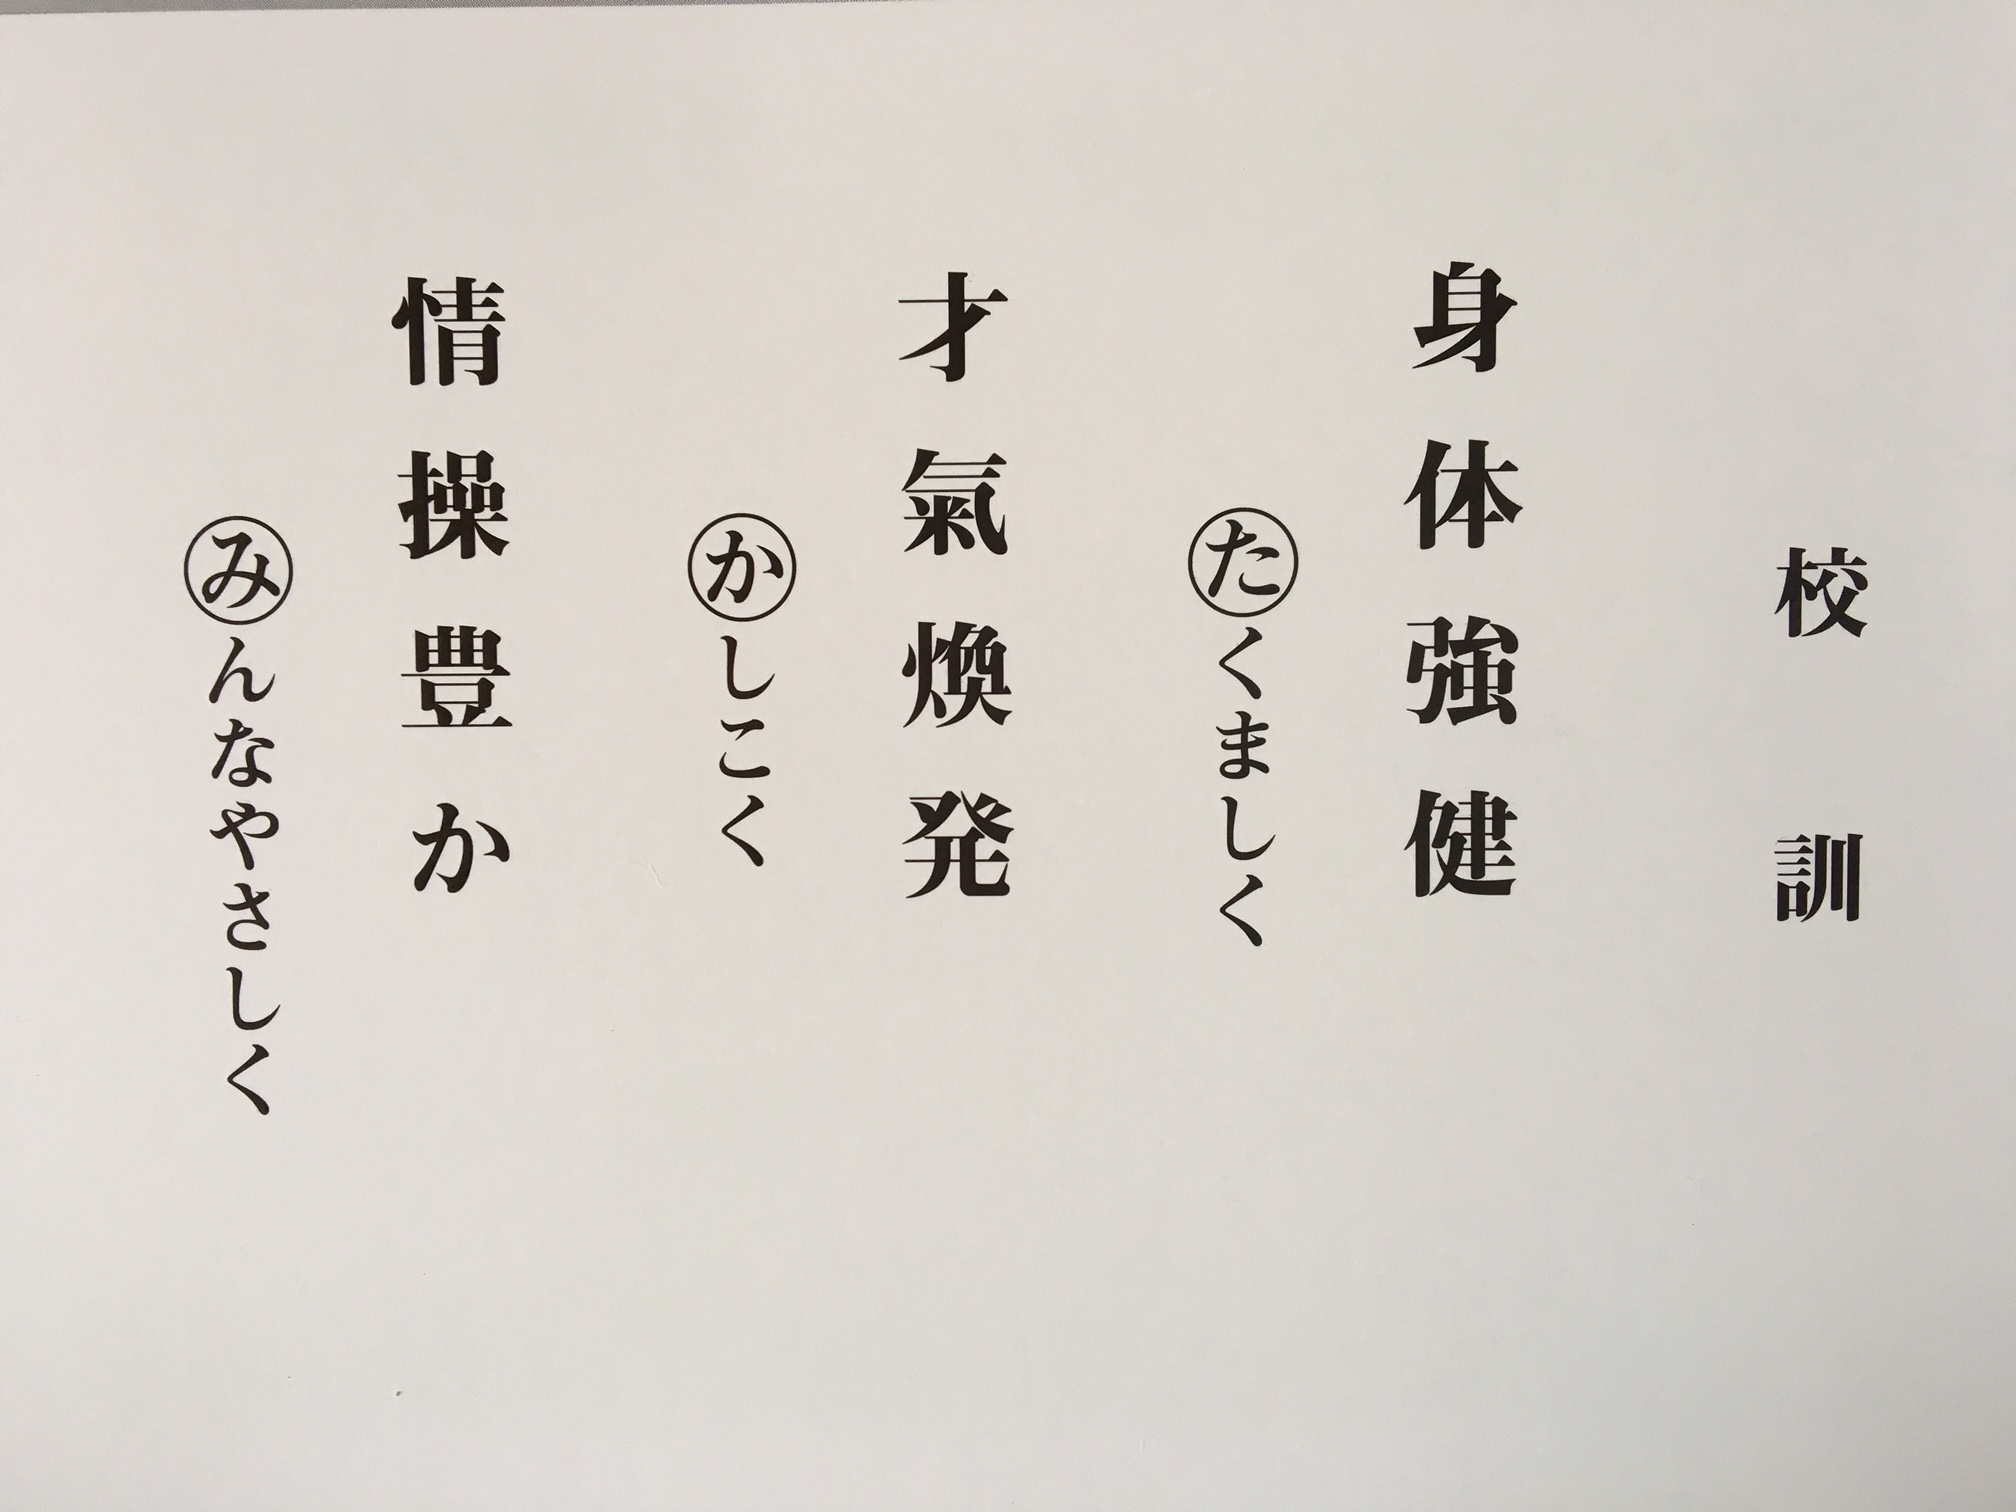 校訓
身体強健
たくましく
才氣煥発
かしこく
情操豊か
みんなやさしく